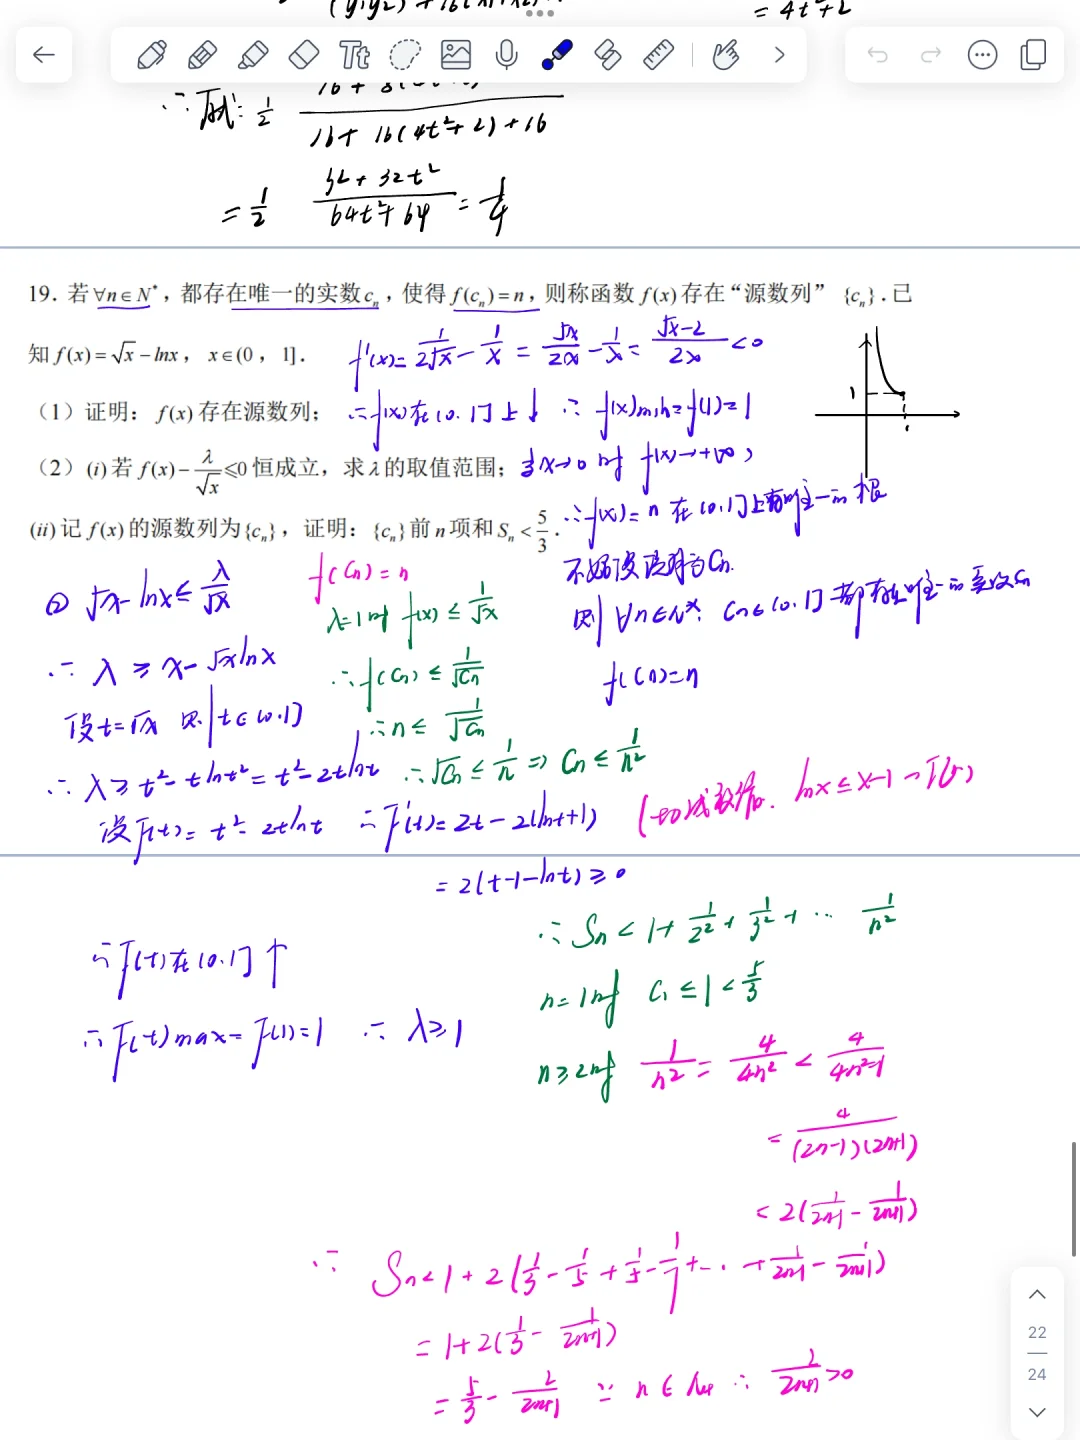 = 4t²+2
∴ 原式 = 1/2
16+16(4t²+2)+16
= 1/2 (32+32t²)/(64t²+64) = 1/4
19. 若∀n∈N*，都存在唯一的实数cₙ，使得f(cₙ)=n，则称函数f(x)存在“源数列”{cₙ}.已
知f(x)=√x−lnx，x∈(0，1].
f'(x)= 1/(2√x) − 1/x = √x/(2x) − 1/x = (√x−2)/(2x) <0
（1）证明：f(x)存在源数列；
∴f(x)在(0.1]上↓ ∴ f(x)min=f(1)=1
（2）(i)若f(x)−λ/√x⩽0恒成立，求λ的取值范围；
当x→0时 f(x)→+∞，
(ii)记f(x)的源数列为{cₙ}，证明：{cₙ}前n项和Sₙ<5/3.
∴f(x)=n 在(0.1]上有唯一的根
不妨设该解为Cn.
则 ∀n∈N*. Cn∈(0.1] 都存在唯一的实数Cn
f(Cn)=n
① √x−lnx≤ λ/√x
∴ λ ≥ x−√xlnx
设t=√x 则 t∈(0.1]
∴ λ≥ t²−tlnt² = t²−2tlnt
设F(t)= t²−2tlnt ∴F'(t)= 2t−2(lnt+1)
= 2(t−1−lnt)≥0
∴F(t)在(0.1]↑
∴F(t)max=F(1)=1 ∴ λ≥1
f(Cn)=n
λ=1时 f(x)≤ 1/√x
∴f(Cn)≤ 1/√Cn
∴n≤ 1/√Cn
∴√Cn≤ 1/n ⇒ Cn≤ 1/n²
lnx≤x−1
∴ Sn< 1+ 1/2² + 1/3² + ⋯ 1/n²
n=1时 C₁≤1< 5/3
n≥2时 1/n² = 4/4n² < 4/(4n²−1)
= 4/((2n−1)(2n+1))
< 2(1/(2n−1) − 1/(2n+1))
∴ Sn<1+2(1/3 − 1/5 + 1/5 − 1/7 +⋯+ 1/(2n−1) − 1/(2n+1))
= 1+2(1/3 − 1/(2n+1))
= 5/3 − 2/(2n+1) ∵ n∈N* ∴ 2/(2n+1)>0
22
24